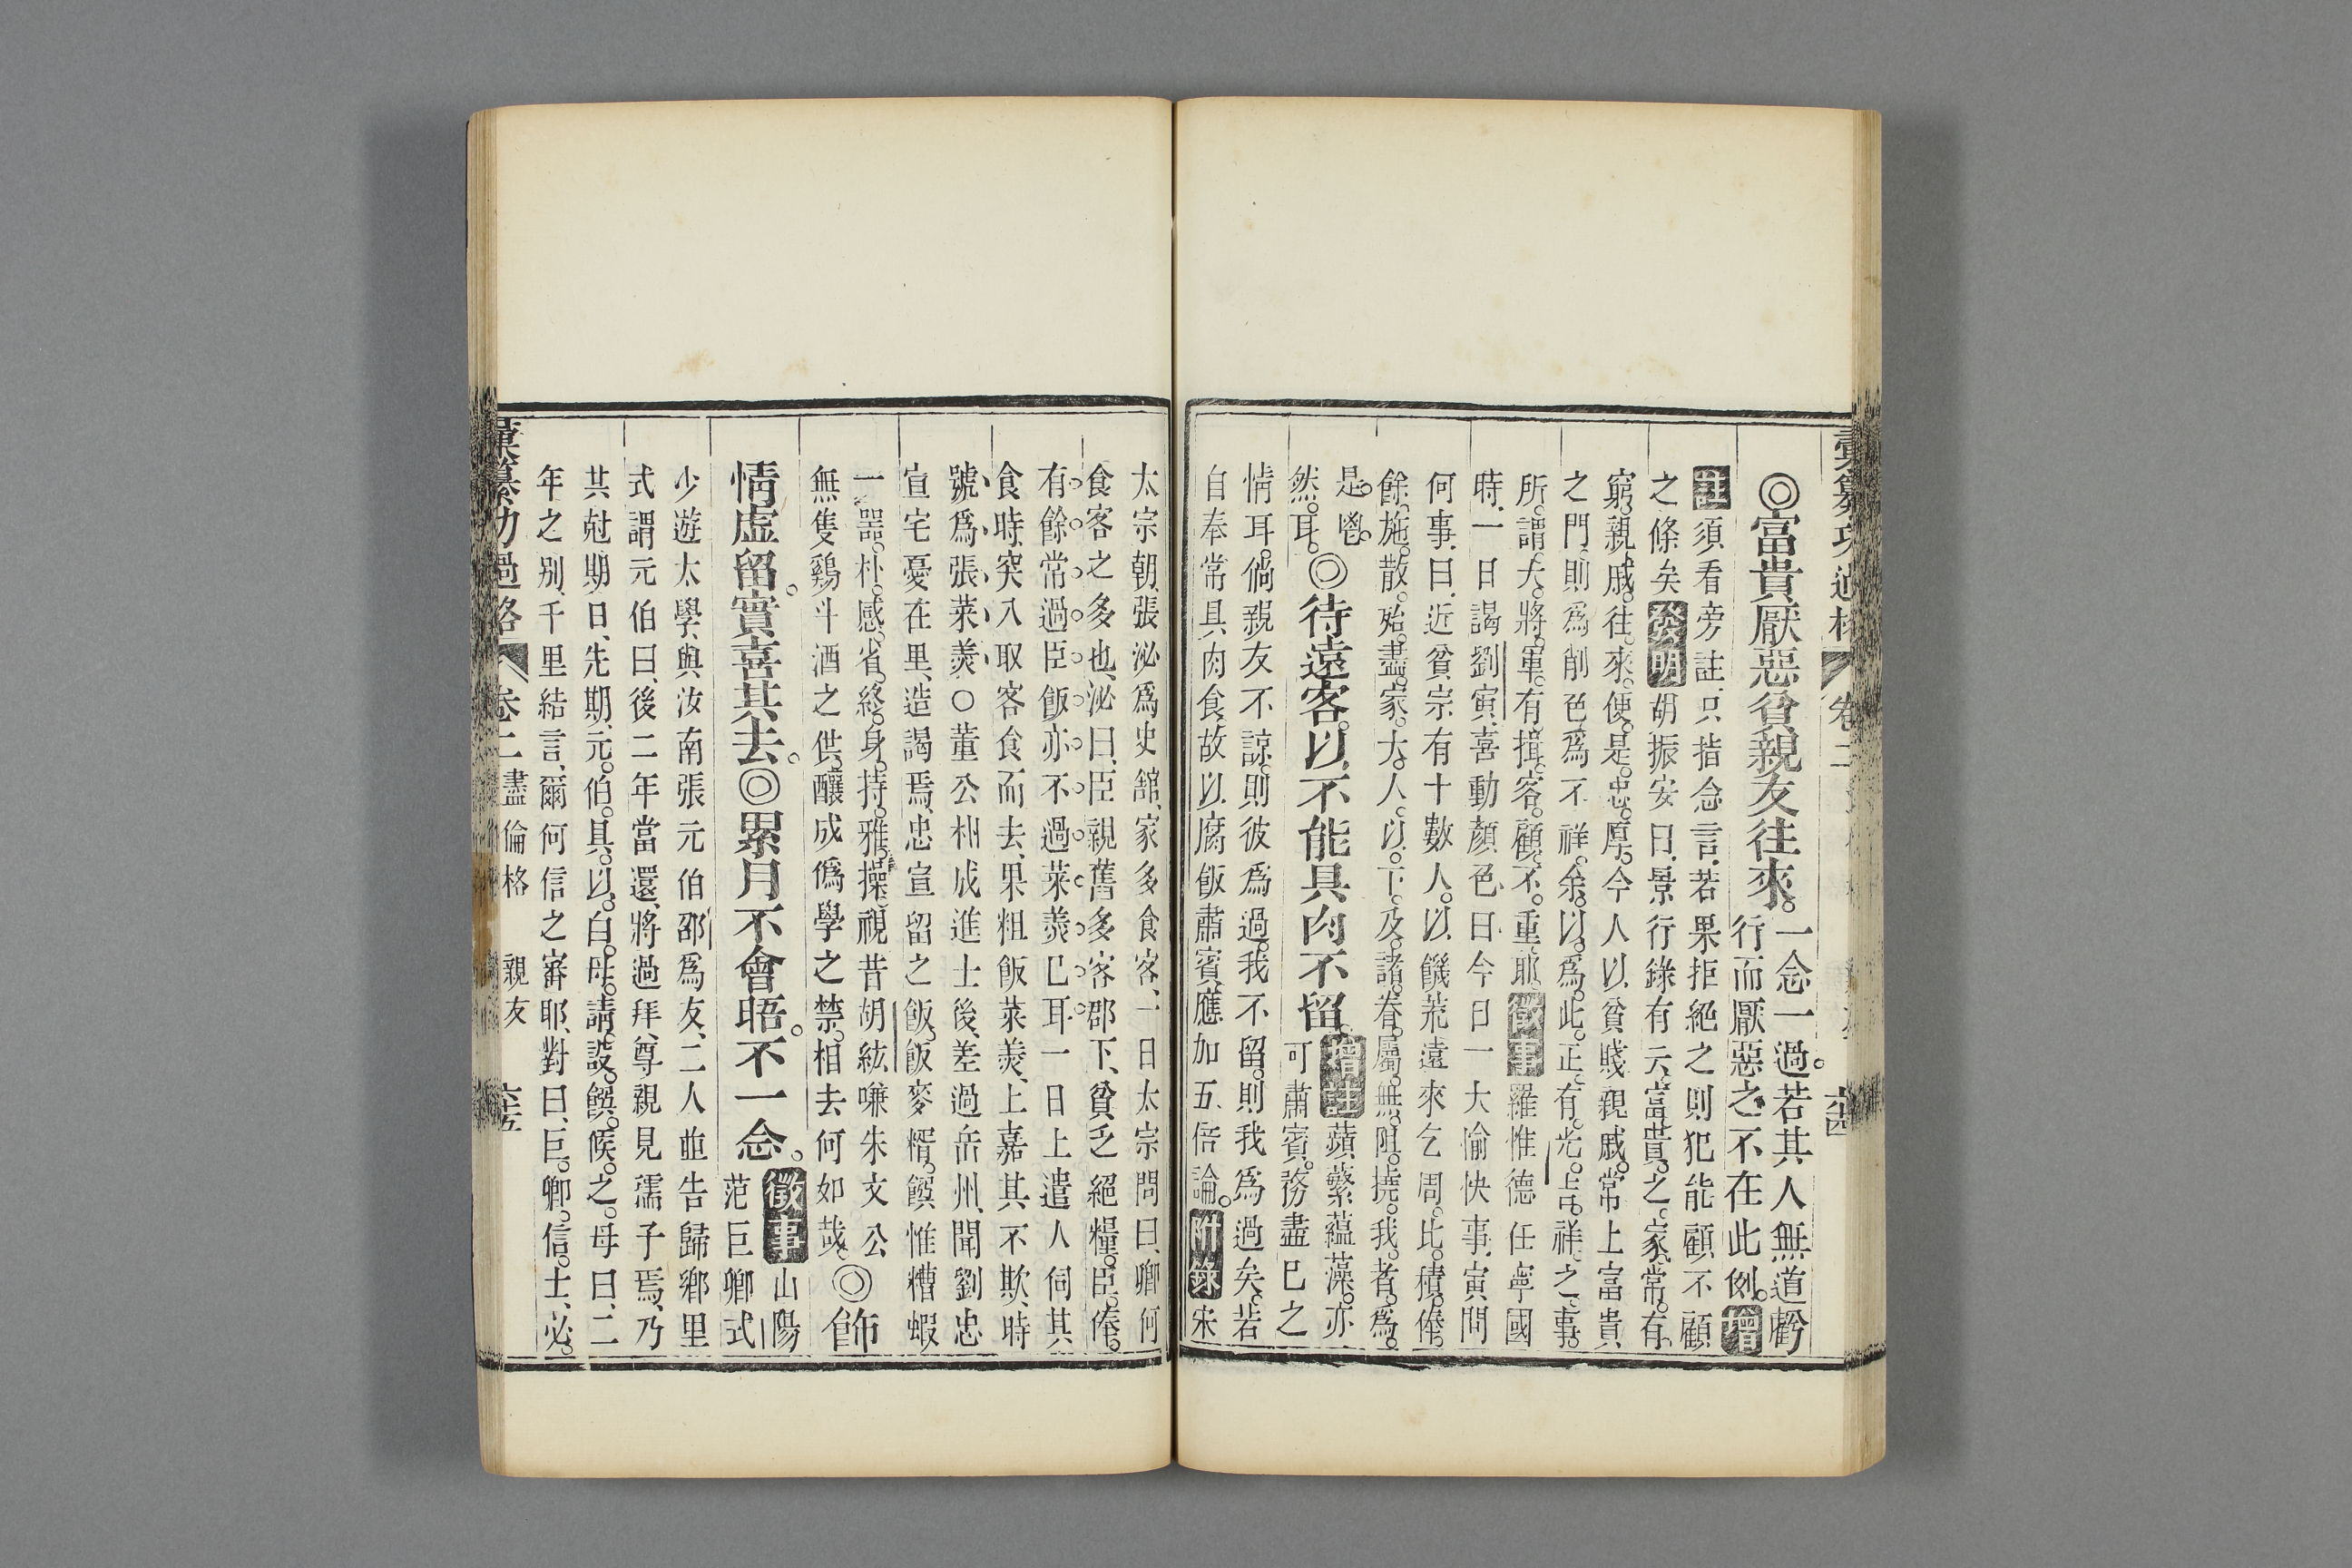 彙纂功過格 卷二
◎富貴厭惡貧親友往來。一念一過。若其人無道虧
行而厭惡之不在此例。增
註須看旁註只指念言若果拒絕之則犯能顧不顧
之條矣發明胡振安曰景行錄有云富貴之家常有
窮親戚往來便是忠厚今人以貧賤親戚常上富貴
之門則為削色為不祥余以為此正有光吉祥之事
所謂大將軍有揖客顧不重耶徵事羅惟德任寧國
時一日謁劉寅喜動顏色曰今日一大愉快事寅問
何事曰近貧宗有十數人以饑荒遠來乞周比積俸
餘施散殆盡家大人以下及諸眷屬無阻撓我者為
是鬯
然耳◎待遠客以不能具肉不留。增註蘋蘩蘊藻亦
可肅賓務盡已之
情耳倘親友不諒則彼為過我不留則我為過矣若
自奉常具肉食故以腐飯肅賓應加五倍論附錄宋
太宗朝張泌為史館家多食客一日太宗問曰卿何
食客之多也泌曰臣親舊多客郡下貧乏絕糧臣俸
有餘常過臣飯亦不過菜羹已耳一日上遣人伺其
食時突入取客食而去果粗飯菜羹上嘉其不欺時
號為張菜羹○董公朴成進士後差過岳州聞劉忠
宣宅憂在里造謁焉忠宣留之飯飯麥糈饌惟糟蝦
一噐朴感省終身持雅操視昔胡紘嗛朱文公
無隻鷄斗酒之供釀成僞學之禁相去何如哉◎飾
情虛留實喜其去。◎累月不會晤。不一念。徵事山陽
范巨卿式
少遊太學與汝南張元伯邵為友二人並告歸鄉里
式謂元伯曰後二年當還將過拜尊親見孺子焉乃
其尅期日先期元伯具以白母請設饌候之母曰二
年之别千里結言爾何信之審耶對曰巨卿信士必
彙纂功過格 卷二 盡倫格 親友 六十五